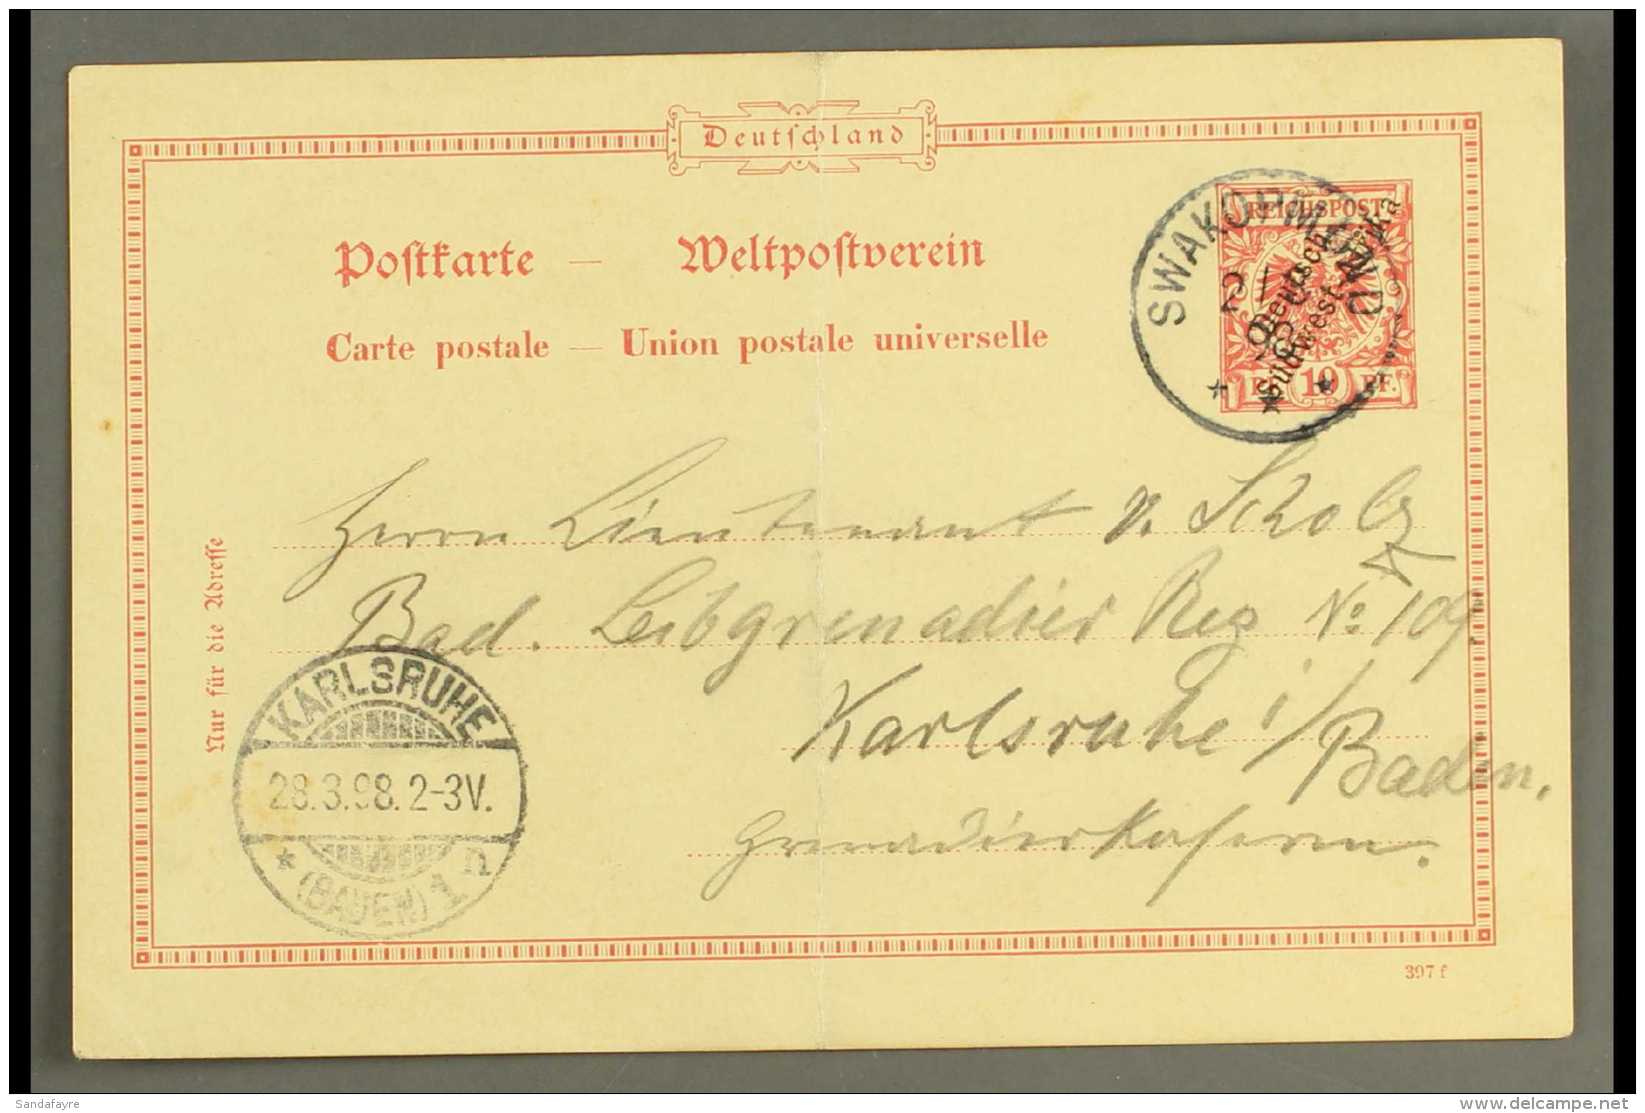 Deutschland
Postkarte — Weltpostverein
Carte postale — Union postale universelle
REICHSPOST
Deutsch-
Südwest-
10 PF.
SWAKOPMUND
2/
98
Herrn Lieutenant v. Scholz
Bad. Leibgrenadier Reg No 109
Karlsruhe i/Baden.
Grenadierkaserne.
Nur für die Adresse
KARLSRUHE
28.3.98. 2-3V.
(BADEN) 1 n
397 f
Sandafayre
delcampe.net